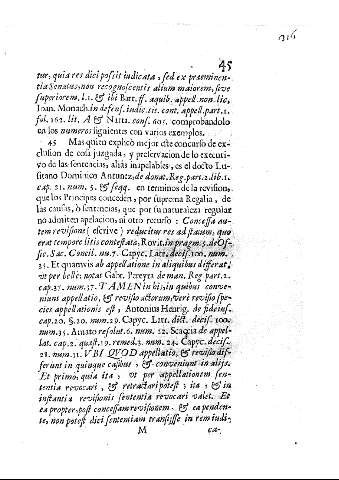 45
tur, quia res dici possit iudicata, sed ex præeminen-
tia Senatus, non recognoscentis alium maiorem, sive
superiorem, l. 1. & ibi Bart. ff. à quib. appell. non lic,
Ioan. Monach. in defens. iudic. tit. cont. appell. part. 1.
fol. 162. lit. A & Natta. cons. 605. comprobandolo
en los numeros siguientes con varios exemplos.
45 Mas quien explicò mejor este concurso de ex-
clusion de cosa juzgada, y preservacion de lo executi-
vo de las sentencias, aliàs inapelables, es el docto Lu-
sitano Dominico Antunez, de donat. Reg. part. 2. lib. 1.
cap. 21. num. 5. & seqq. en terminos de la revision,
que los Principes conceden, por suprema Regalia, de
las causas, ò sentencias, que por su naturaleza regular
no admiten apelacion, ni otro recurso: Concessa au-
tem revisione (escrive) reducitur res ad statum, quo
erat tempore litis contestata, Rovit. in pragm. 5. de Of-
fic. Sac. Concil. nu. 7. Capyc. Latr. decis. 100. num.
35. Et quamvis ab appellatione in aliquibus differat,
ut per bellè: notas Gabr. Pereyra de man. Reg. part. 2.
cap. 37. num. 37. TAMEN in his, in quibus conve-
niunt appellatio, & revisio actorum, veri revisio spe-
cies appellationis est; Antonius Henrig. de fideiuss.
cap. 20. §. 20. num. 29. Capyc. Latr. dict. decis. 100.
num. 35. Amato resolut. 6. num. 52. Scaccia de appel-
lat. cap. 2. quæst. 19. remed. 3. num. 24. Capyc. decis.
21. num. 31. UBI QUOD appellatio, & revisio dif-
ferunt in quinque casibus, & conveniunt in alijs.
Et primò, quia ita, ut per appellationem sen-
tentia revocari, & retractari potest; ita, & in
instantia revisionis sententia revocari valet. Et
ea propter, post concessam revisionem, & ea penden-
te, non potest dici sententiam transijsse in rem iudi-
M ca-